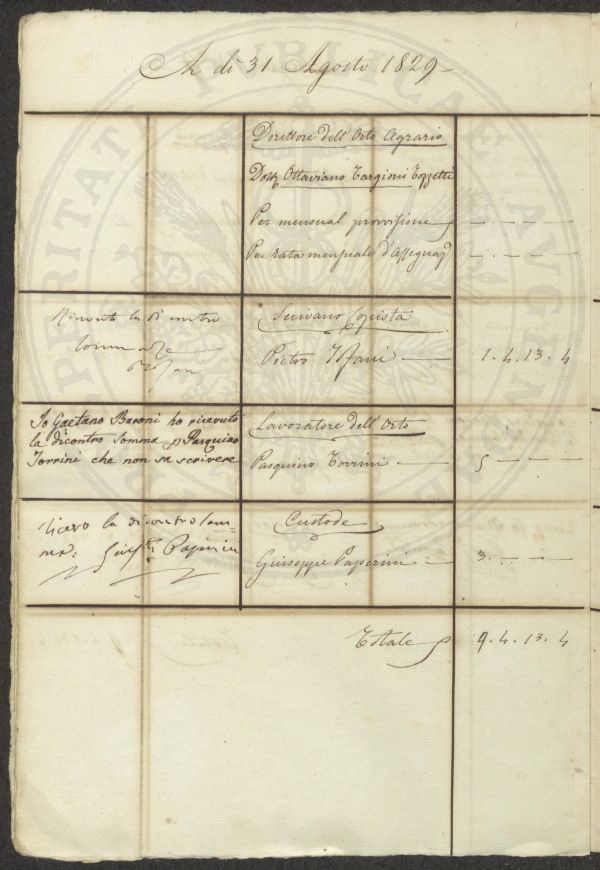 A dì 31. Agosto 1829
Direttore dell'Orto Agrario
Dott. Ottaviano Targioni Tozzetti
Per mensual provvisione
Per rata mensuale d'Assegnaz.
Ricevuto la di contro
Somma
Scrivano Copista
Pietro 1. 4. 13. 4
Io Gaetano Baroni ho ricevuto
la dicontro Somma p Pasquino
Torrini che non sa scrivere
Lavoratore dell'Orto
Pasquino Torrini 5
ricevo la dicontro som=
ma: Giuse. Paperini
Custode
Giuseppe Paperini 3.
Totale 9. 4. 13. 4
PERITATI PUBLICAE